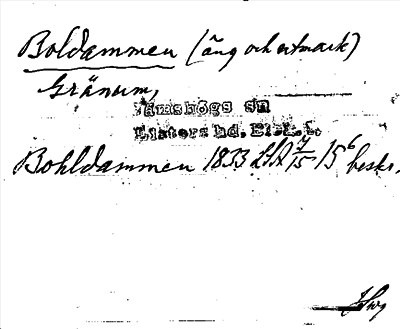 Boldammen (äng och utmark)
Gränum,
Jämshögs sn
Listers hd. Blek. l.
Bohldammen 1833 LSA 7/15 15⁶ beskr.